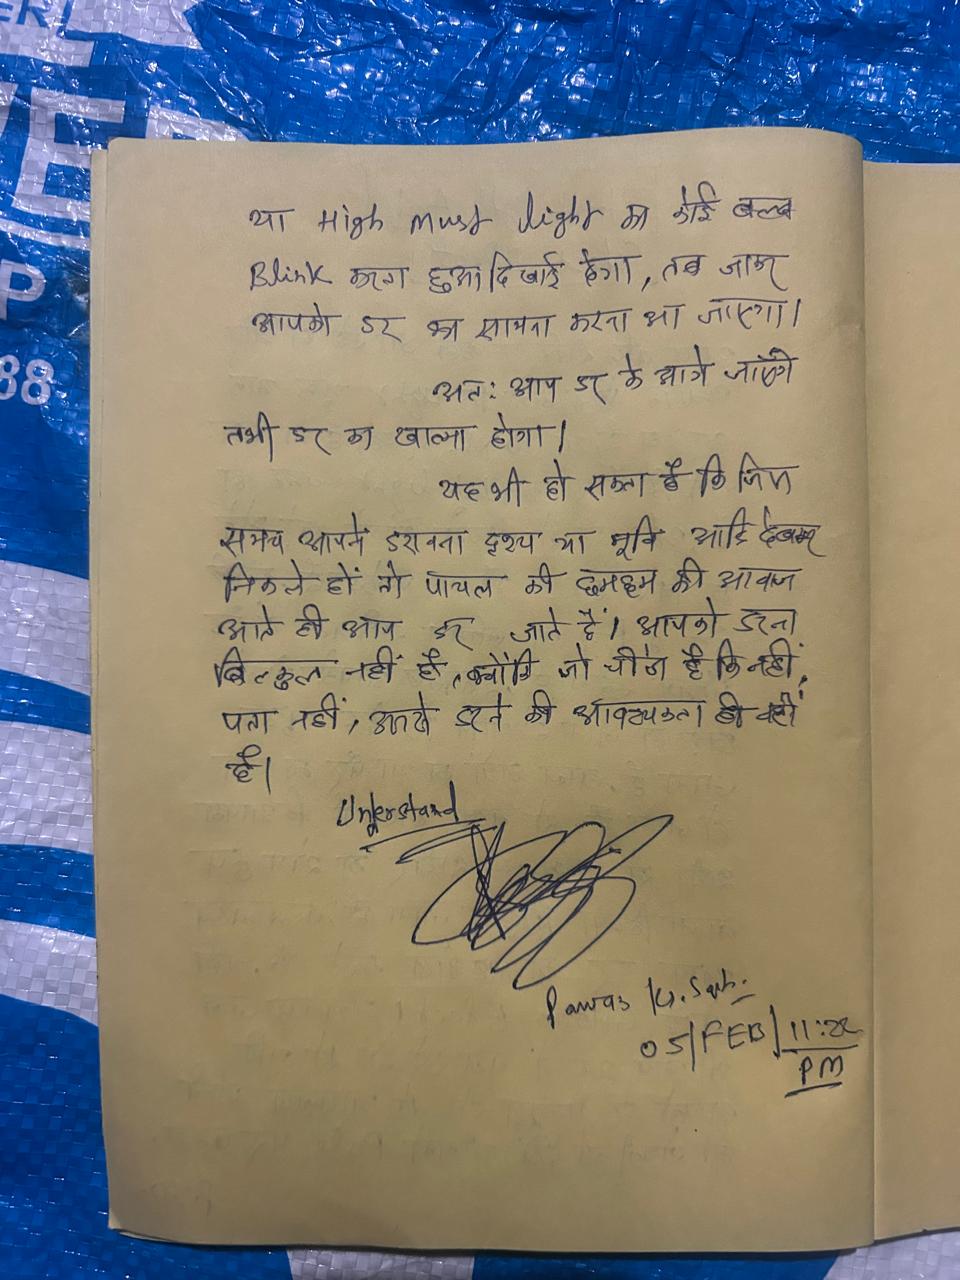 ER
VER
P
88
या High Must light का कोई बल्ब
Blink करता हुआ दिखाई देगा, तब जाकर
आपको डर का सामना करना आ जाएगा।
अतः आप डर के आगे जाएँगे
तभी डर का खात्मा होगा।
यह भी हो सकता है कि जिस
समय आपने डरावना दृश्य या मूवि आदि देखकर
निकले हों तो पायल की छमछम की आवाज
आते ही आप डर जाते हैं। आपको डरना
बिल्कुल नहीं है, क्योंकि जो चीज है कि नहीं,
पता नहीं, उससे डरने की आवश्यकता ही नहीं
है।
Understand
Pawas Kr.
05/FEB/11:22
PM